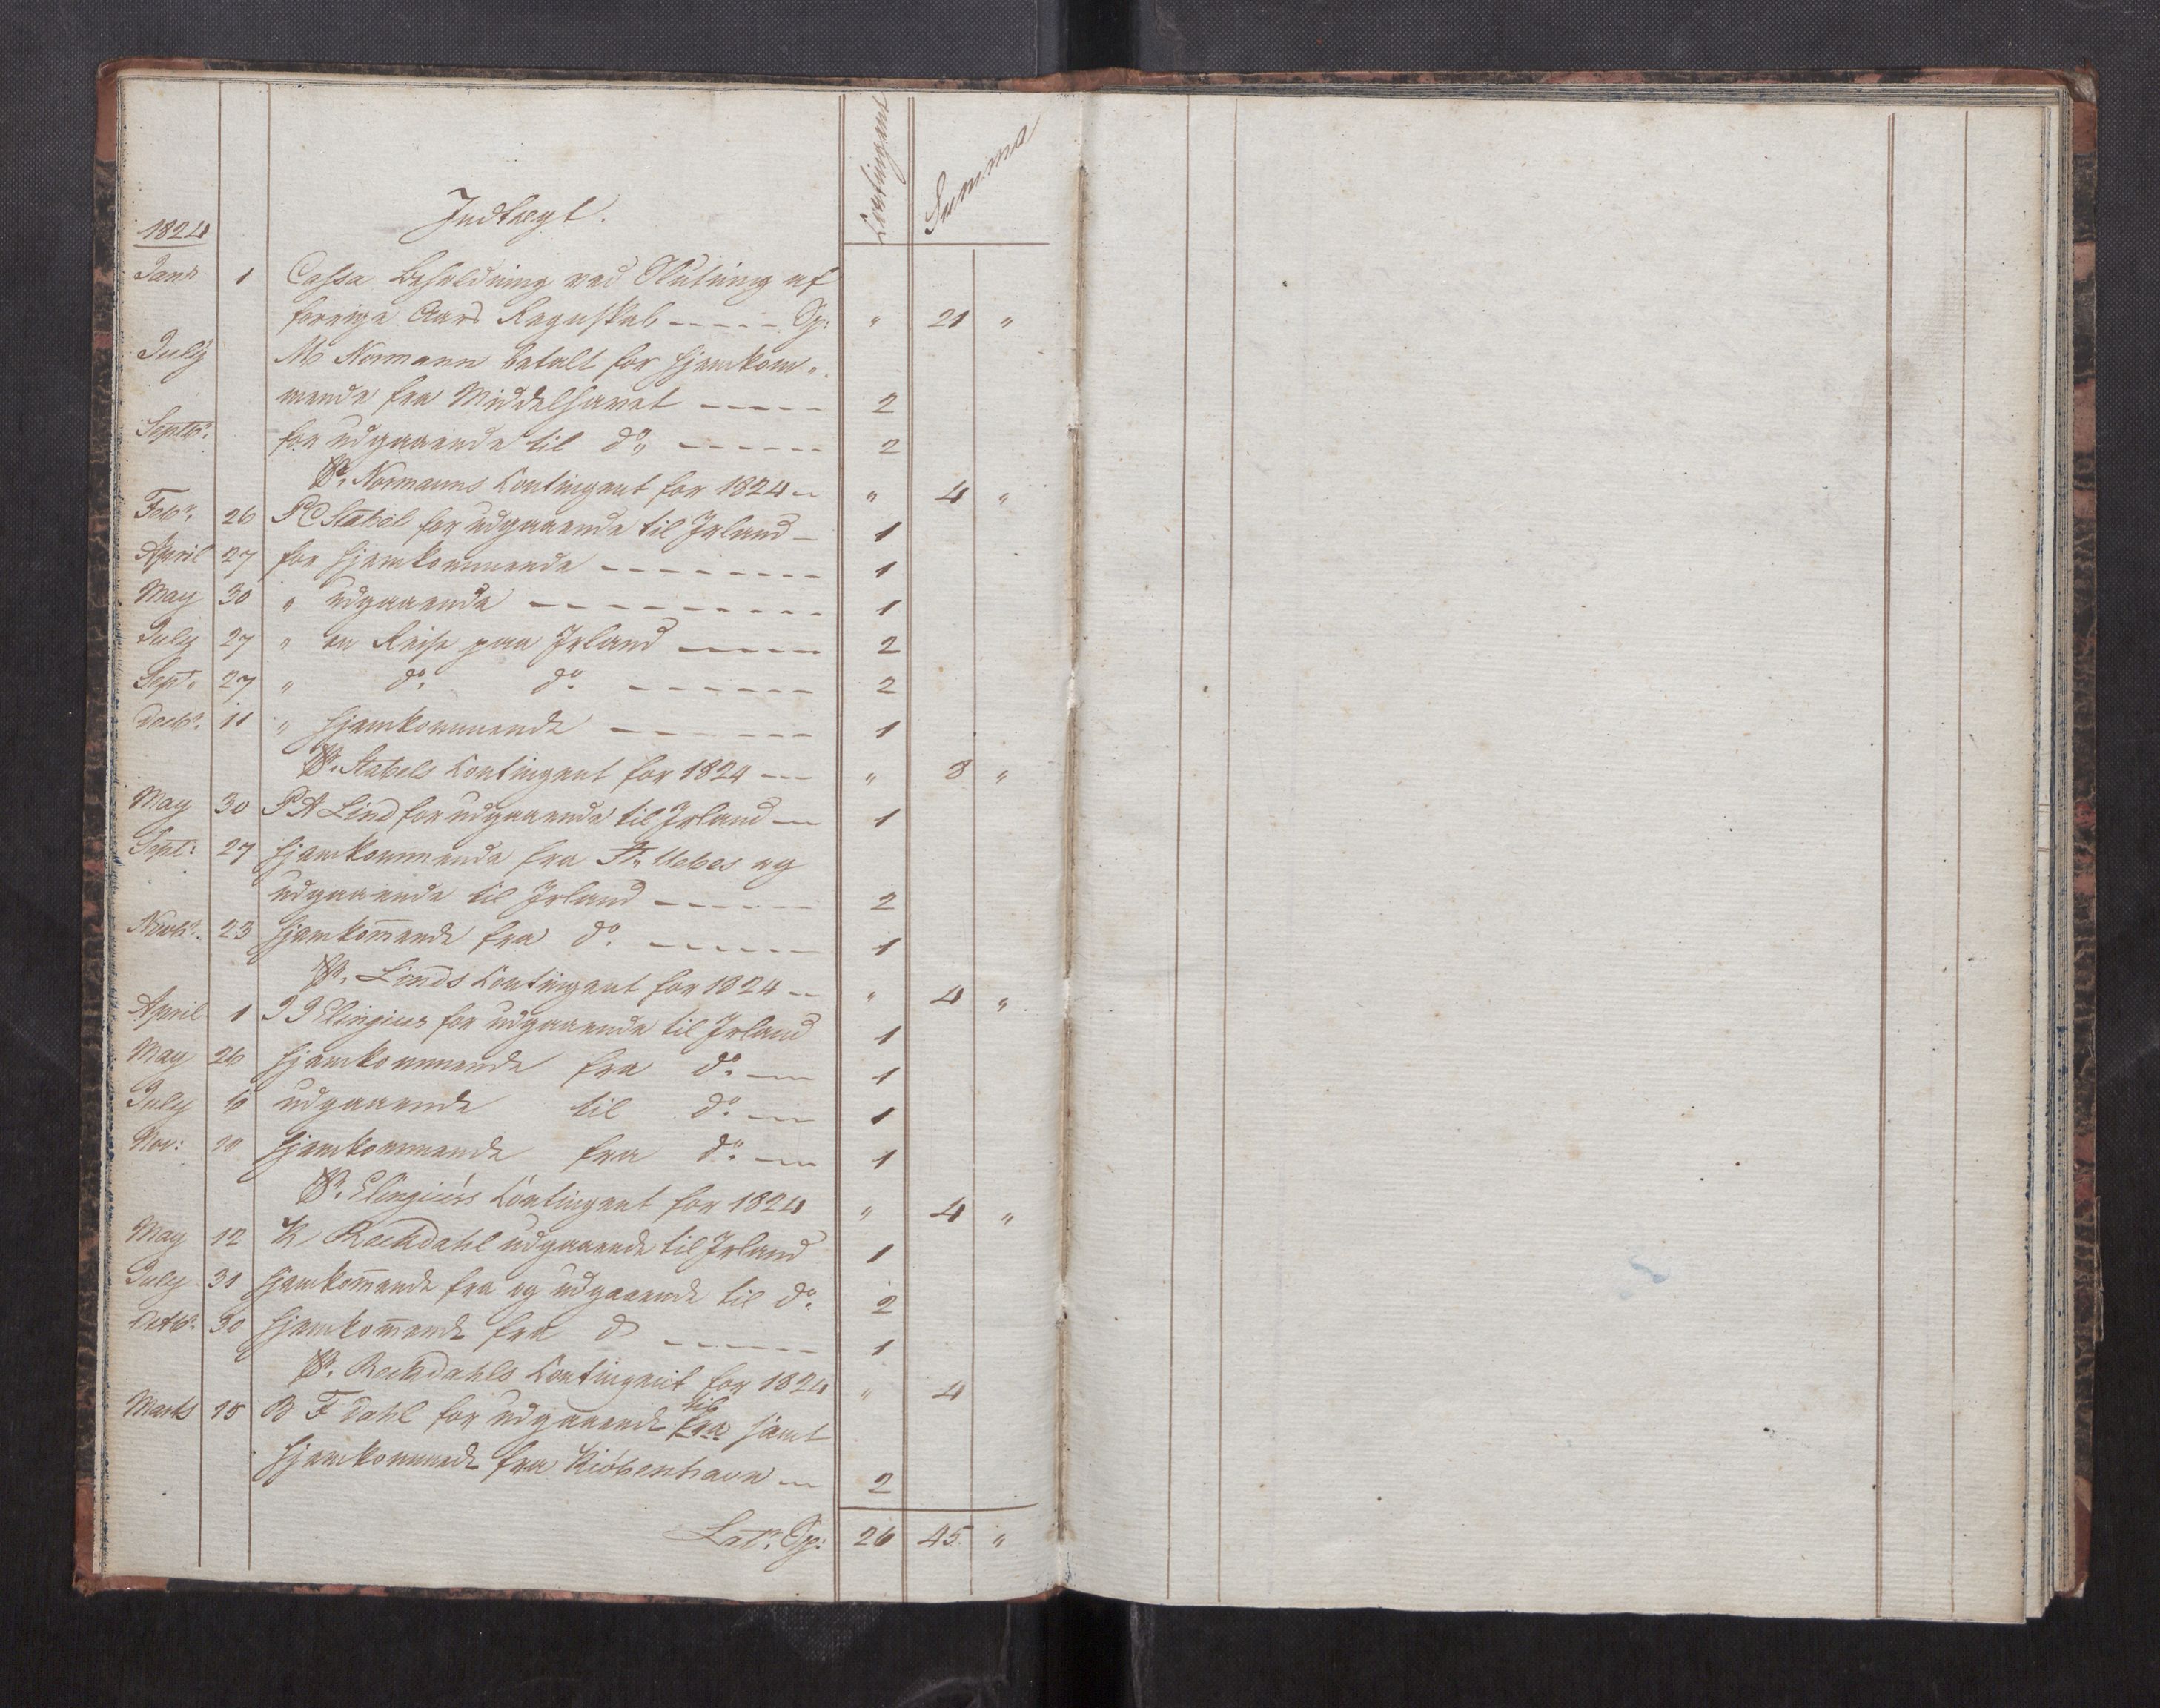 Contingent Summa
Indtægt.
1824
Janr 1 Cassa Beholdning ved Slutning af
forrige Aars Regnskab ----- Sp: " 21 "
July M Normann betalt for hjemkom-
mende fra Middelhavet ----- 2
Septbr. for udgaaende til do ------ 2
Sr. Normanns Contingent for 1824 -- " 4 "
Febr. 26 P C Stabel for udgaaende til Irland - 1
April 27 for hjemkommende -------- 1
May 30 " udgaaende --------- 1
July 27 " en Reise paa Irland ----- 2
Sept. 27 " do. do. ------ 2
Decbr. 11 " hjemkommende ------ 1
Sr. Stabels Contingent for 1824 --- " 8 "
May 30 P A Lind for udgaaende til Irland -- 1
Sept: 27 hjemkommende fra St. Uebes og
udgaaende til Irland ----- 2
Novbr. 23 hjemkom̄ende fra do. ----- 1
Sr. Linds Contingent for 1824 -- " 4 "
April 1 J J Elingius for udgaaende til Irland 1
May 26 hjemkommende fra do. -- 1
July 6 udgaaende til do. -- 1
Nov: 20 hjemkommende fra do. -- 1
Sr. Elingiuss Contingent for 1824 " 4 "
May 12 K Rockdahl udgaaende til Irland 1
July 31 hjemkom̄ende fra og udgaaende til do. 2
Octbr. 30 hjemkom̄ende fra d ----- 1
Sr. Rockdahls Contingent for 1824 " 4
Marts 15 B F Dahl for udgaaende fra til samt
hjemkommende fra Kiöbenhavn -- 2
Latr. Sp: 26 45 "